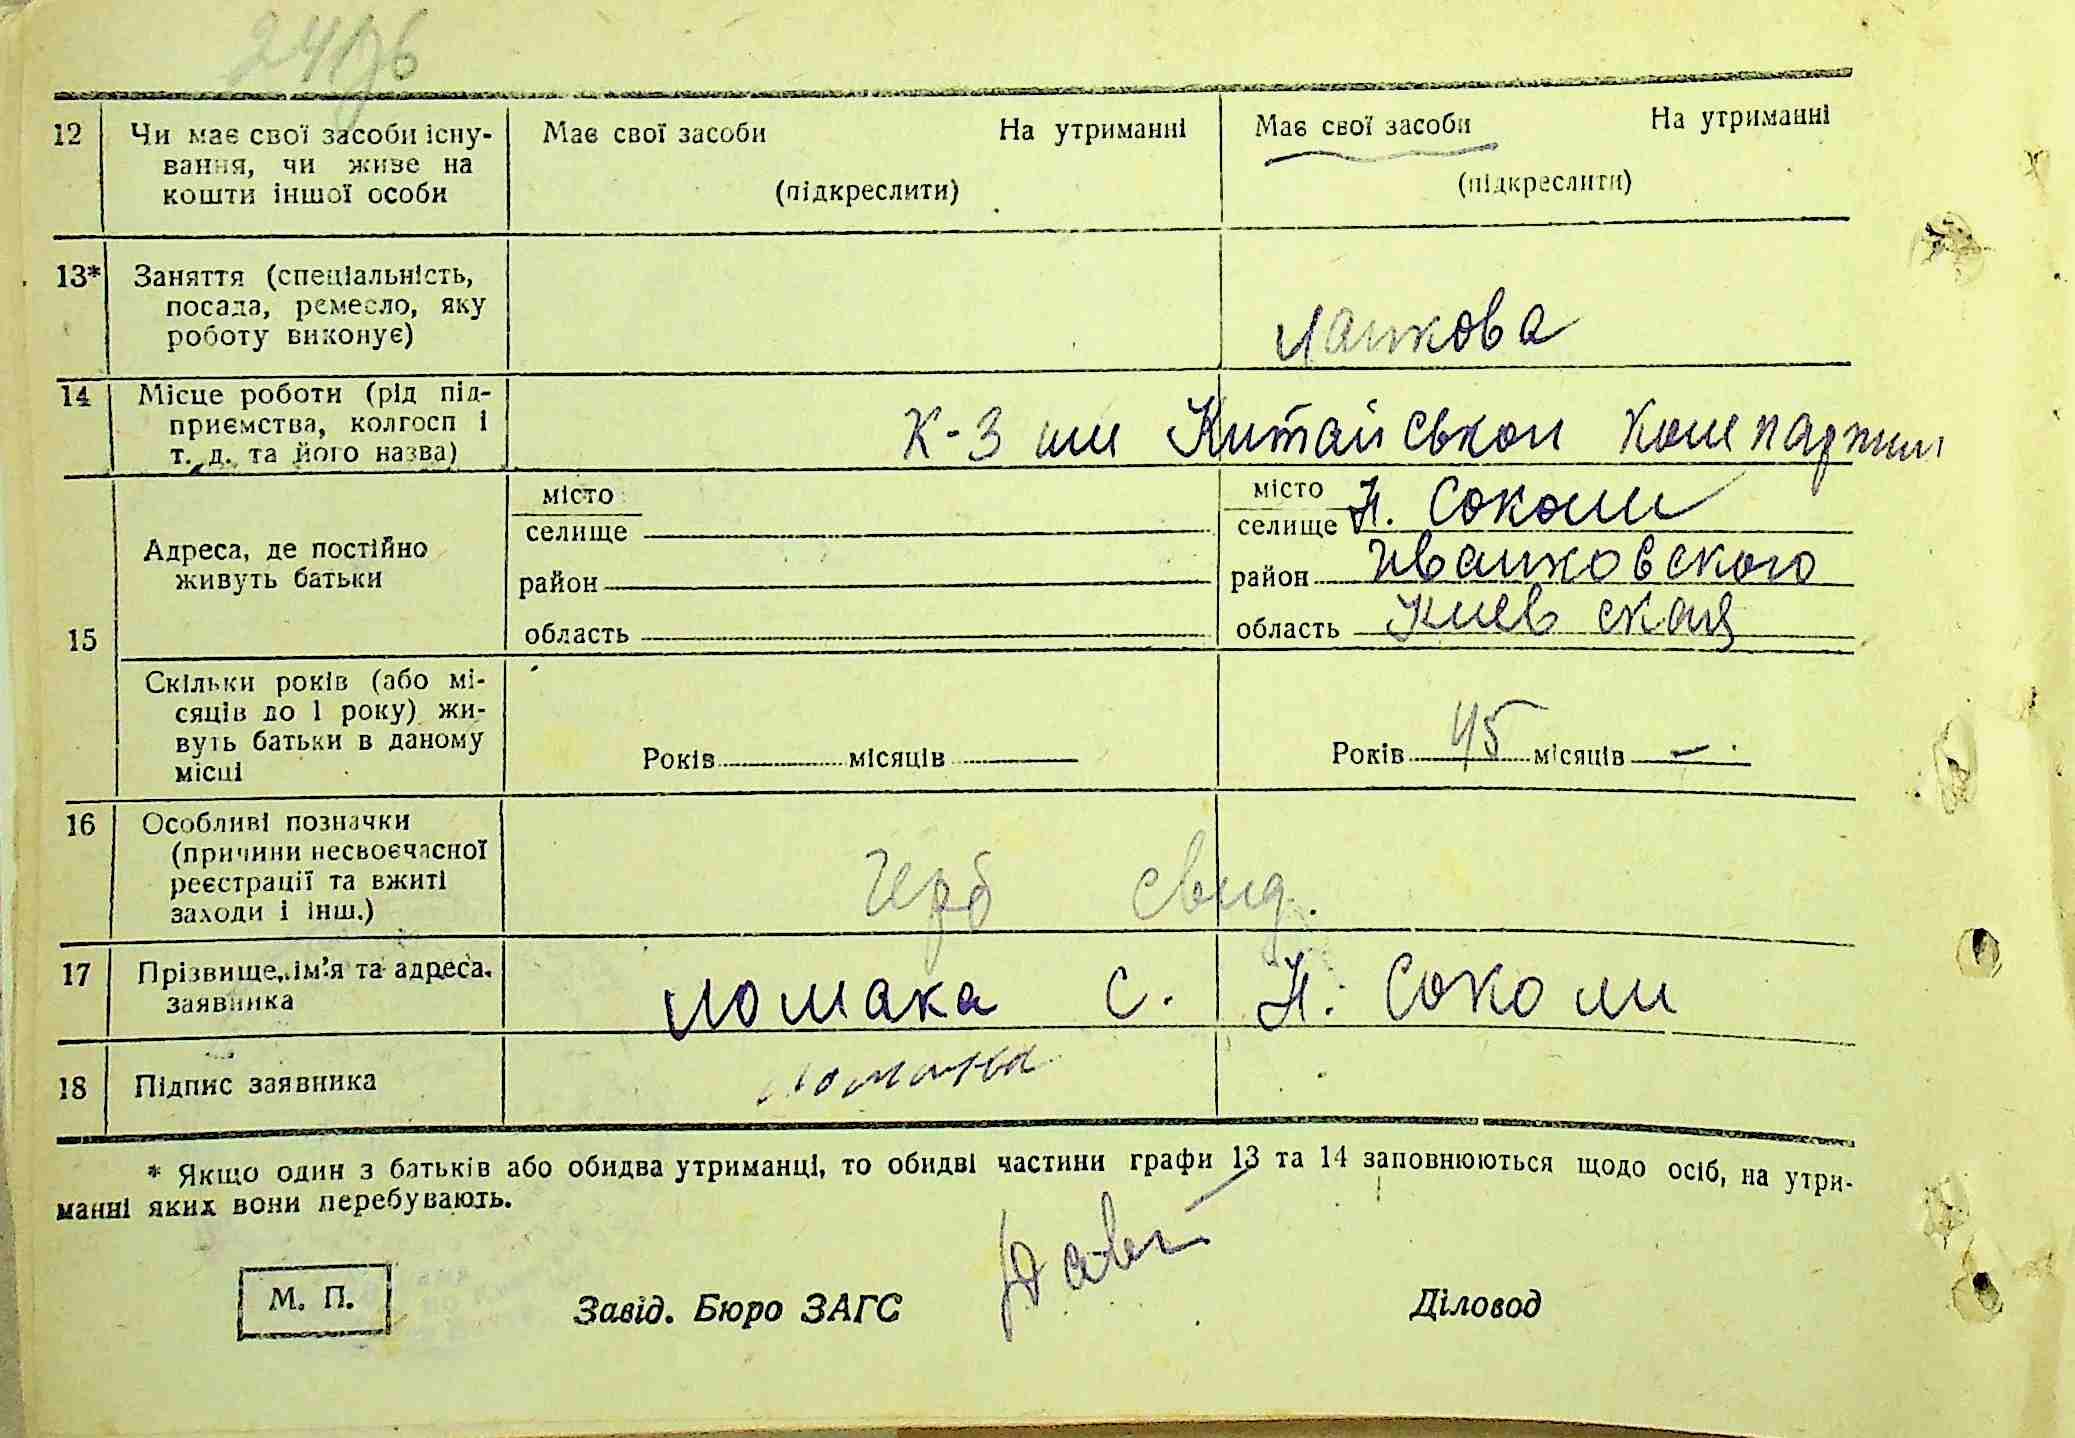 12 Чи має свої засоби існу-
вання, чи живе на
кошти іншої особи
Має свої засоби На утриманні
(підкреслити)
Має свої засоби На утриманні
(підкреслити)
13* Заняття (спеціальність,
посада, ремесло, яку
роботу виконує)
ланкова
14 Місце роботи (рід під-
приємства, колгосп і
т. д. та його назва)
К-з им Китайськой компартии
15 Адреса, де постійно
живуть батьки
місто
селище
район
область
місто
селище Н. Соколи
район Иванковского
область Киевская
Скільки років (або мі-
сяців до 1 року) жи-
вуть батьки в даному
місці
Років місяців
Років 45 місяців —
16 Особливі позначки
(причини несвоєчасної
реєстрації та вжиті
заходи і інш.)
герб свид.
17 Прізвище, ім'я та адреса
заявника
Ломака С. Н. Соколи
18 Підпис заявника
Ломака
* Якщо один з батьків або обидва утриманці, то обидві частини графи 13 та 14 заповнюються щодо осіб, на утри-
манні яких вони перебувають.
М. П.
Завід. Бюро ЗАГС
Діловод